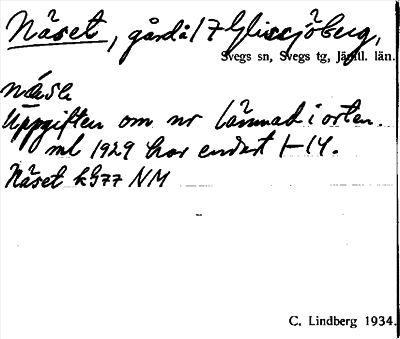 Näset, gård å 17 Glissjöberg,
Svegs sn, Svegs tg, Jämtl. län.
Uppgiften om nr lämnad i orten.
ml 1929 har endast 1-14.
Näset k977 NM
C. Lindberg 1934.